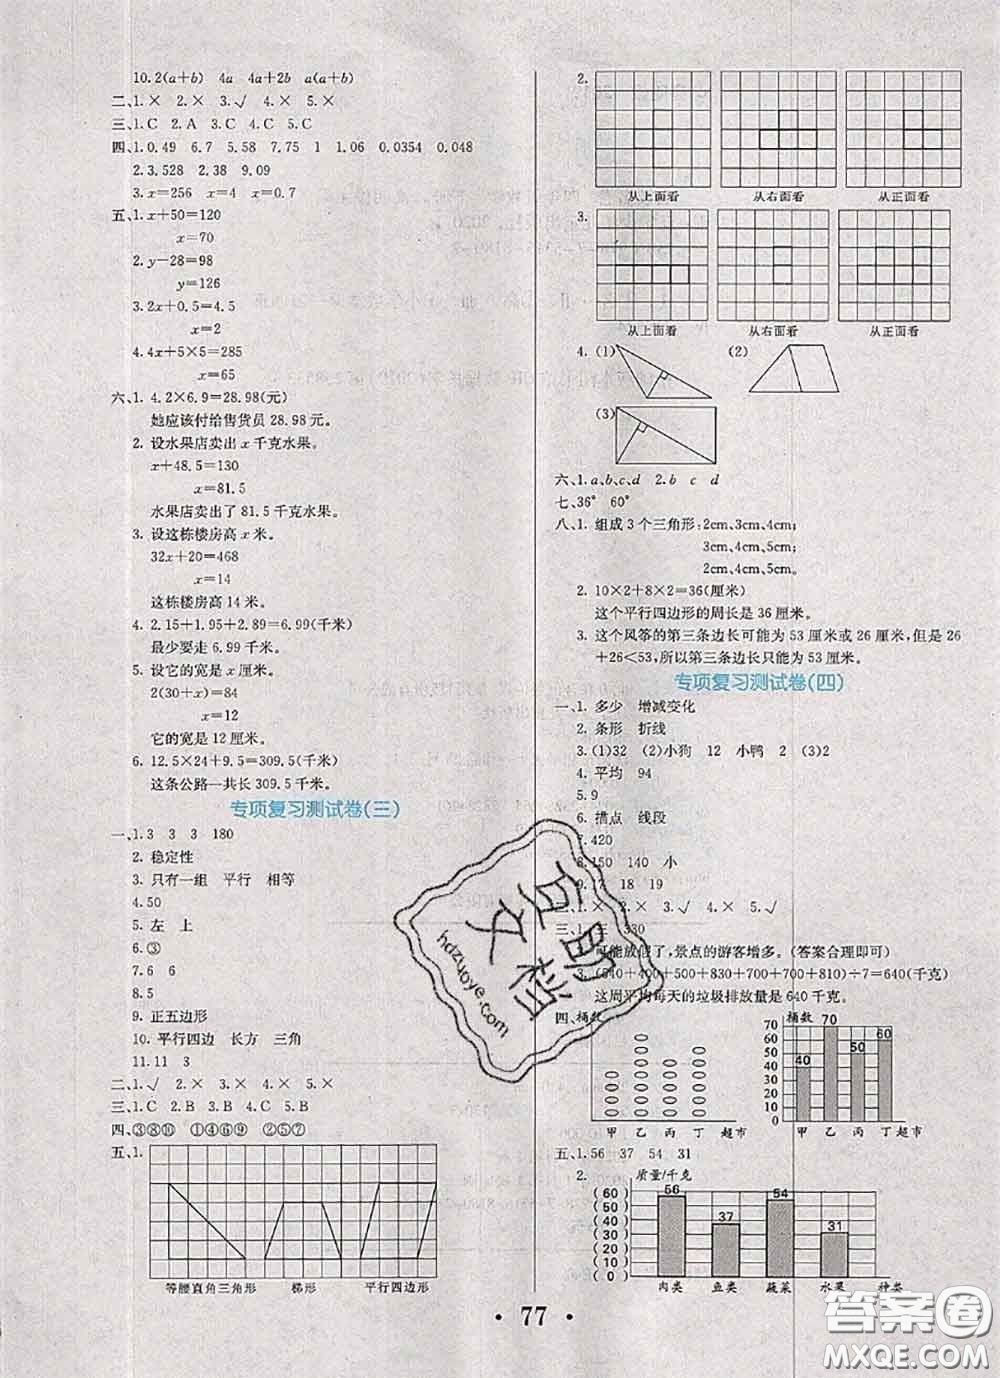 10. 2(a+b)　4a　4a+2b　a(a+b)
二、1.×　2.×　3.√　4.×　5.×
三、1.C　2.A　3.C　4.C　5.C
四、1. 0.49　6.7　5.58　7.75　1　1.06　0.0354　0.048
2. 3.528　2.38　9.09
3. x=256　x=4　x=0.7
五、1. x+50=120
x=70
2. y-28=98
y=126
3. 2x+0.5=4.5
x=2
4. 4x+5×5=285
x=65
六、1. 4.2×6.9=28.98(元)
她应该付给售货员 28.98 元。
2. 设水果店卖出 x 千克水果。
x+48.5=130
x=81.5
水果店卖出了 81.5 千克水果。
3. 设这栋楼房高 x 米。
32x+20=468
x=14
这栋楼房高 14 米。
4. 2.15+1.95+2.89=6.99(千米)
最少要走 6.99 千米。
5. 设它的宽是 x 厘米。
2(30+x)=84
x=12
它的宽是 12 厘米。
6. 12.5×24+9.5=309.5(千米)
这条公路一共长 309.5 千米。
专项复习测试卷(三)
一、1. 3　3　3　180
2. 稳定性
3. 只有一组　平行　相等
4. 50
5. 左　上
6. ③
7. 6　6
8. 5
9. 正五边形
10. 平行四边　长方　三角
11. 11　3
二、1.√　2.×　3.×　4.×　5.×
三、1.C　2.B　3.B　4.C　5.B
四、③⑧⑩　①④⑥⑨　②⑤⑦
五、1.
等腰直角三角形　梯形　平行四边形
2.
从上面看　从右面看　从正面看
3.
从上面看　从右面看　从正面看
4. (1)　(2)
(3)
六、1. a、b、c、d　2. b　c　d
七、36°　60°
八、1. 组成 3 个三角形：2cm、3cm、4cm；
3cm、4cm、5cm；
2cm、4cm、5cm。
2. 10×2+8×2=36(厘米)
这个平行四边形的周长是 36 厘米。
3. 这个风筝的第三条边长可能为 53 厘米或 26 厘米，但是 26
+26<53，所以第三条边长只能为 53 厘米。
专项复习测试卷(四)
一、1. 多少　增减变化
2. 条形　折线
3. (1)32　(2)小狗　12　小鸭　2　(3)2
4. 平均　94
5. 9
6. 描点　线段
7. 420
8. 150　140　小
9. 17　18　19
二、1.×　2.×　3.√　4.×　5.√
三、1. 三　330
可能放假了，景点的游客增多。(答案合理即可)
3. (540+400+500+830+700+700+810)÷7=640(千克)
这周平均每天的垃圾排放量是 640 千克。
四、桶数
甲　乙　丙　丁　超市
桶数
70
60
50
40
30
20
10
0
40　70　50　60
甲　乙　丙　丁　超市
五、1. 56　37　54　31
2. 质量/千克
(60)
(50)
(40)
(30)
(20)
(10)
(0)
56　37　54　31
肉类　鱼类　蔬菜　水果　种类
• 77 •
互助文档
hdzuoye.com
答案圈
MXQE.COM